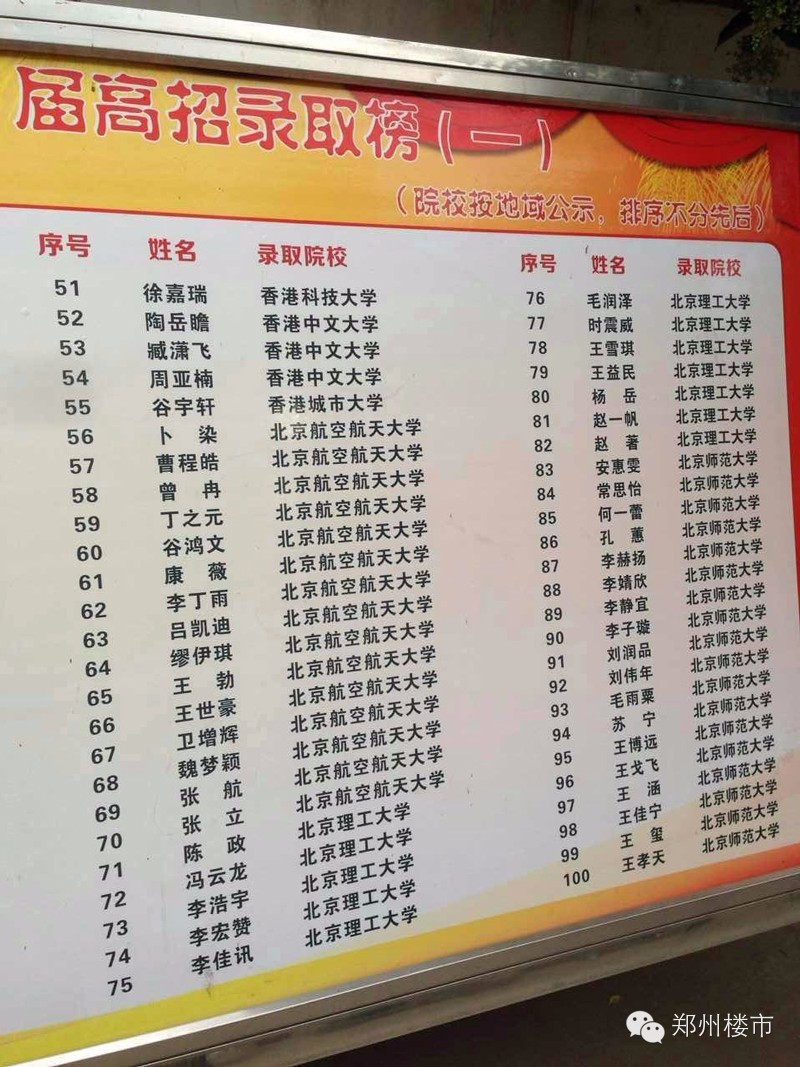 届高招录取榜（一）
（院校按地域公示，排序不分先后）
序号 姓名 录取院校
51 徐嘉瑞 香港科技大学
52 陶岳瞻 香港中文大学
53 臧潇飞 香港中文大学
54 周亚楠 香港中文大学
55 谷宇轩 香港城市大学
56 卜 染 北京航空航天大学
57 曹程皓 北京航空航天大学
58 曾 冉 北京航空航天大学
59 丁之元 北京航空航天大学
60 谷鸿文 北京航空航天大学
61 康 薇 北京航空航天大学
62 李丁雨 北京航空航天大学
63 吕凯迪 北京航空航天大学
64 缪伊琪 北京航空航天大学
65 王 勃 北京航空航天大学
66 王世豪 北京航空航天大学
67 卫增辉 北京航空航天大学
68 魏梦颖 北京航空航天大学
69 张 航 北京航空航天大学
70 张 立 北京航空航天大学
71 陈 政 北京理工大学
72 冯云龙 北京理工大学
73 李浩宇 北京理工大学
74 李宏赞 北京理工大学
75 李佳讯 北京理工大学
序号 姓名 录取院校
76 毛润泽 北京理工大学
77 时震威 北京理工大学
78 王雪琪 北京理工大学
79 王益民 北京理工大学
80 杨 岳 北京理工大学
81 赵一帆 北京理工大学
82 赵 著 北京理工大学
83 安惠雯 北京师范大学
84 常思怡 北京师范大学
85 何一蕾 北京师范大学
86 孔 蕙 北京师范大学
87 李赫扬 北京师范大学
88 李婧欣 北京师范大学
89 李静宜 北京师范大学
90 李子璇 北京师范大学
91 刘润品 北京师范大学
92 刘伟年 北京师范大学
93 毛雨粟 北京师范大学
94 苏 宁 北京师范大学
95 王博远 北京师范大学
96 王戈飞 北京师范大学
97 王 涵 北京师范大学
98 王佳宁 北京师范大学
99 王 玺 北京师范大学
100 王孝天 北京师范大学
郑州楼市